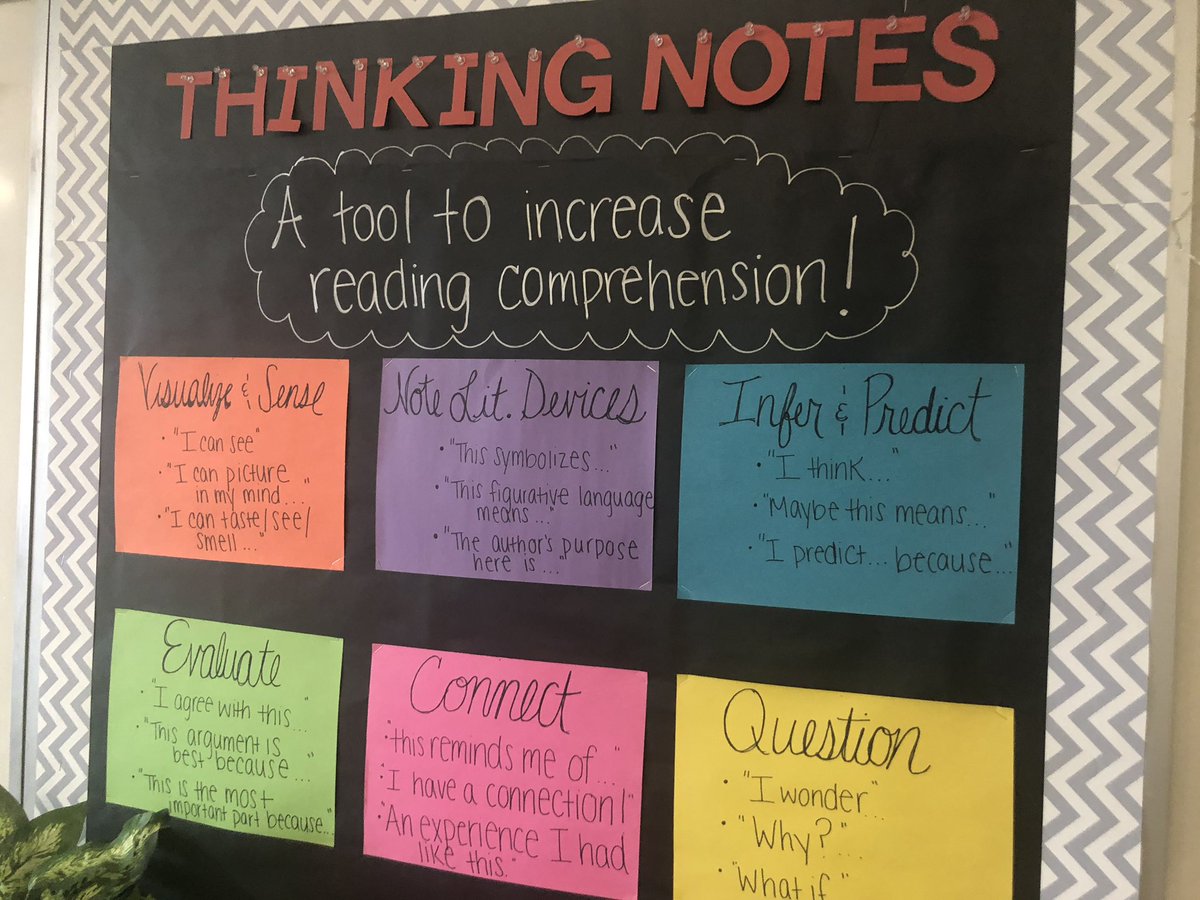 THINKING NOTES
A tool to increase
reading comprehension!
Visualize & Sense
• "I can see"
• "I can picture
in my mind..."
• "I can taste/see/
smell..."
Note Lit. Devices
• "This symbolizes..."
• "This figurative language
means..."
• "The author's purpose
here is..."
Infer & Predict
• "I think..."
• "Maybe this means..."
• "I predict... because..."
Evaluate
• "I agree with this..."
• "This argument is
best because..."
• "This is the most
important part because..."
Connect
• "this reminds me of..."
• "I have a connection!"
• "An experience I had
like this."
Question
• "I wonder..."
• "Why?"...
• "What if